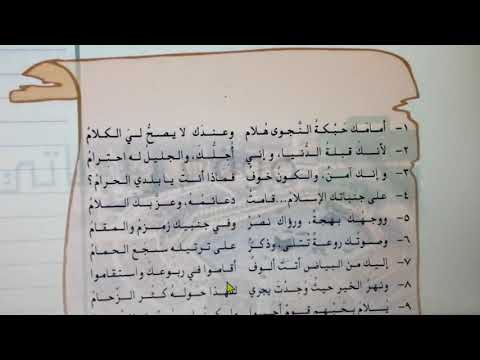 ١- أمامك حبكة النجوى هلام وعندك لا يصحُّ لي الكلامُ
٢- لأنك قبلة الدُّنيا، وإني أُجلُّك، والجليل له احترامُ
٣- وإنك آمنٌ، والكونُ خوفٌ فماذا أنت يا بلدي الحرامُ؟
٤- على جنباتك الإسلام... قامتْ دعائمُه، وعزَّ بك السلامُ
٥- ووجهُك بهجةٌ، ورؤاك نصْرٌ وفي جنبيك زمزمُ والمقامُ
٦- وصوتك روعةٌ تُتلى، وذكرٌ على ترتيله سجع الحمامُ
٧- إليك من البياض أتتْ ألوفٌ أقاموا في ربوعك واستقاموا
٨- ونهرُ الخير حيثُ وُجدتَ يجري لهذا حولهُ كثُر الزِّحامُ
٩- يُلامُ بحبِّهم قومٌ